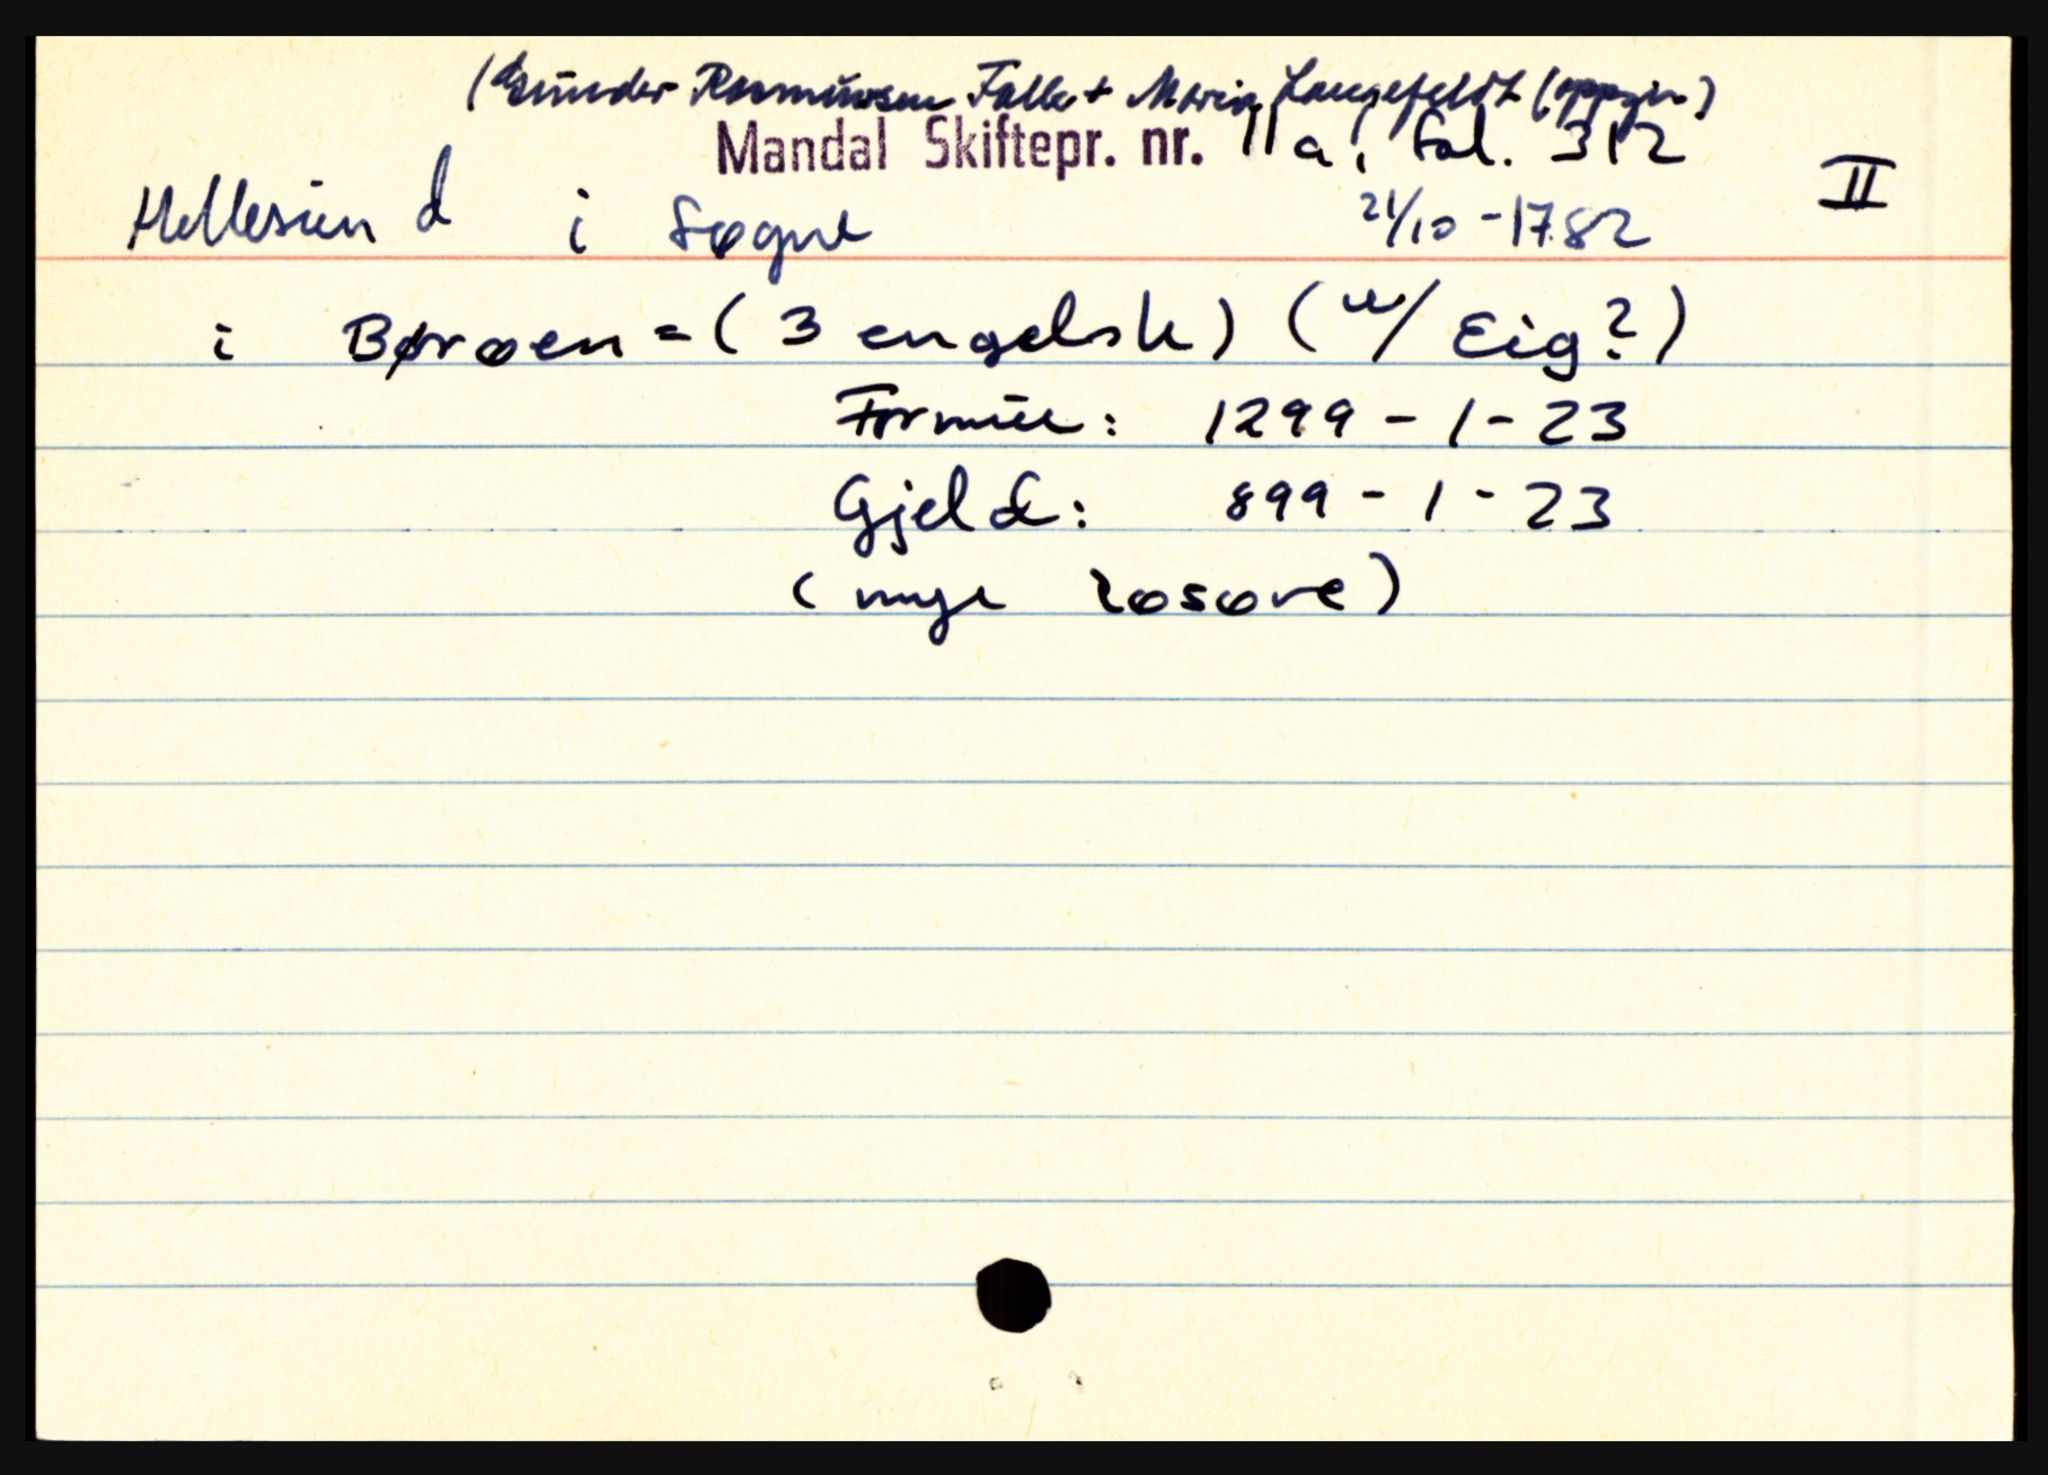 (Gunder Rasmussen Falk + Maria Langefeldt (oppgir)
Mandal Skiftepr. nr. 11 a, fol. 312
Hellesund i Søgne 21/10 - 1782 II
i Børøen = (3 engelsk) (u/ Eig?)
Formue: 1299 - 1 - 23
Gjeld: 899 - 1 - 23
(mye løsøre)